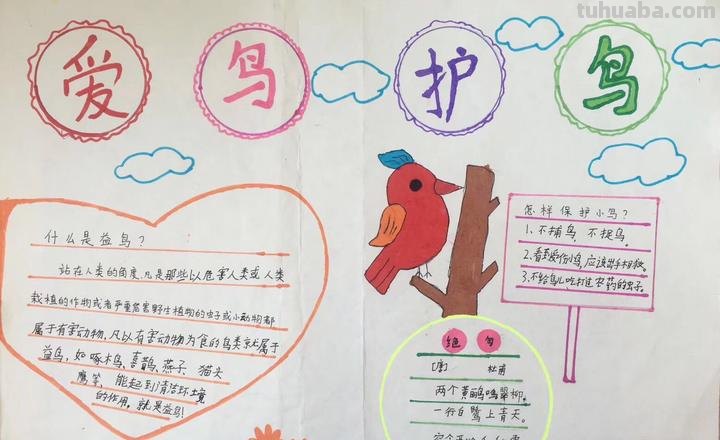 tuhuaba.com
爱鸟护鸟
什么是益鸟?
站在人类的角度,凡是那些以危害人类或人类
栽植的作物或者严重危害野生植物的虫子或小动物都
属于有害动物,凡以有害动物为食的鸟类就属于
益鸟,如啄木鸟、喜鹊、燕子、猫头
鹰等,能起到清洁环境
的作用,就是益鸟!
怎样保护小鸟?
1、不捕鸟,不捉鸟。
2、看到受伤小鸟,应该出手相救。
3、不给鸟儿吃打过农药的虫子。
绝句
[唐] 杜甫
两个黄鹂鸣翠柳,
一行白鹭上青天。